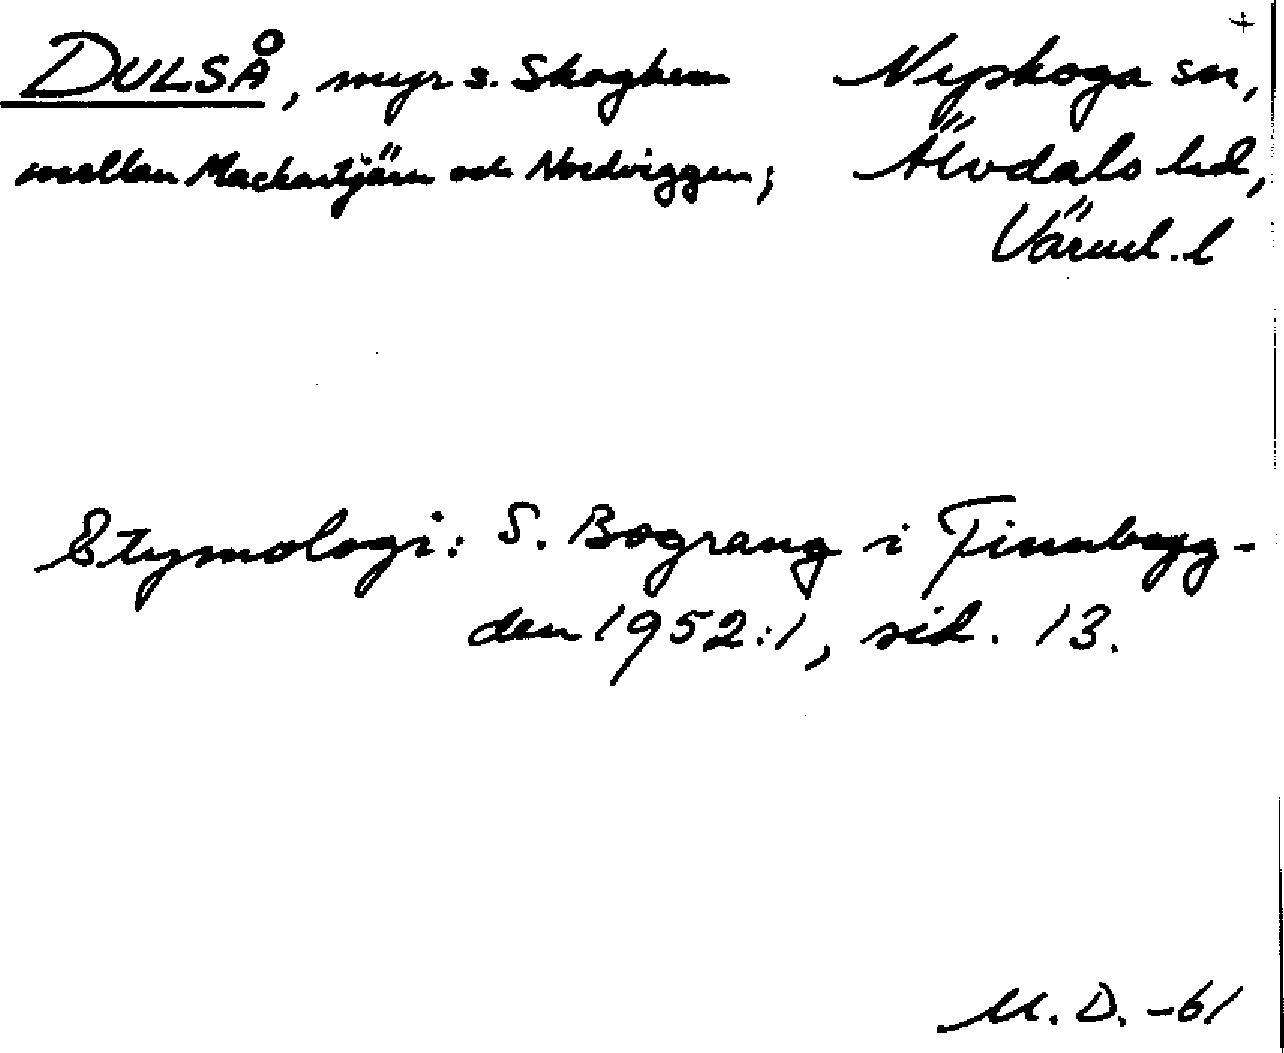 DULSÅ, myr s. Skoghem Nyskoga sn,
mellan Mackartjärn och Nordviggen; Älvdals hd,
Värml. l
Etymologi: S. Bograng i Finnbygg-
den 1952:1, sid. 13.
M.D. -61